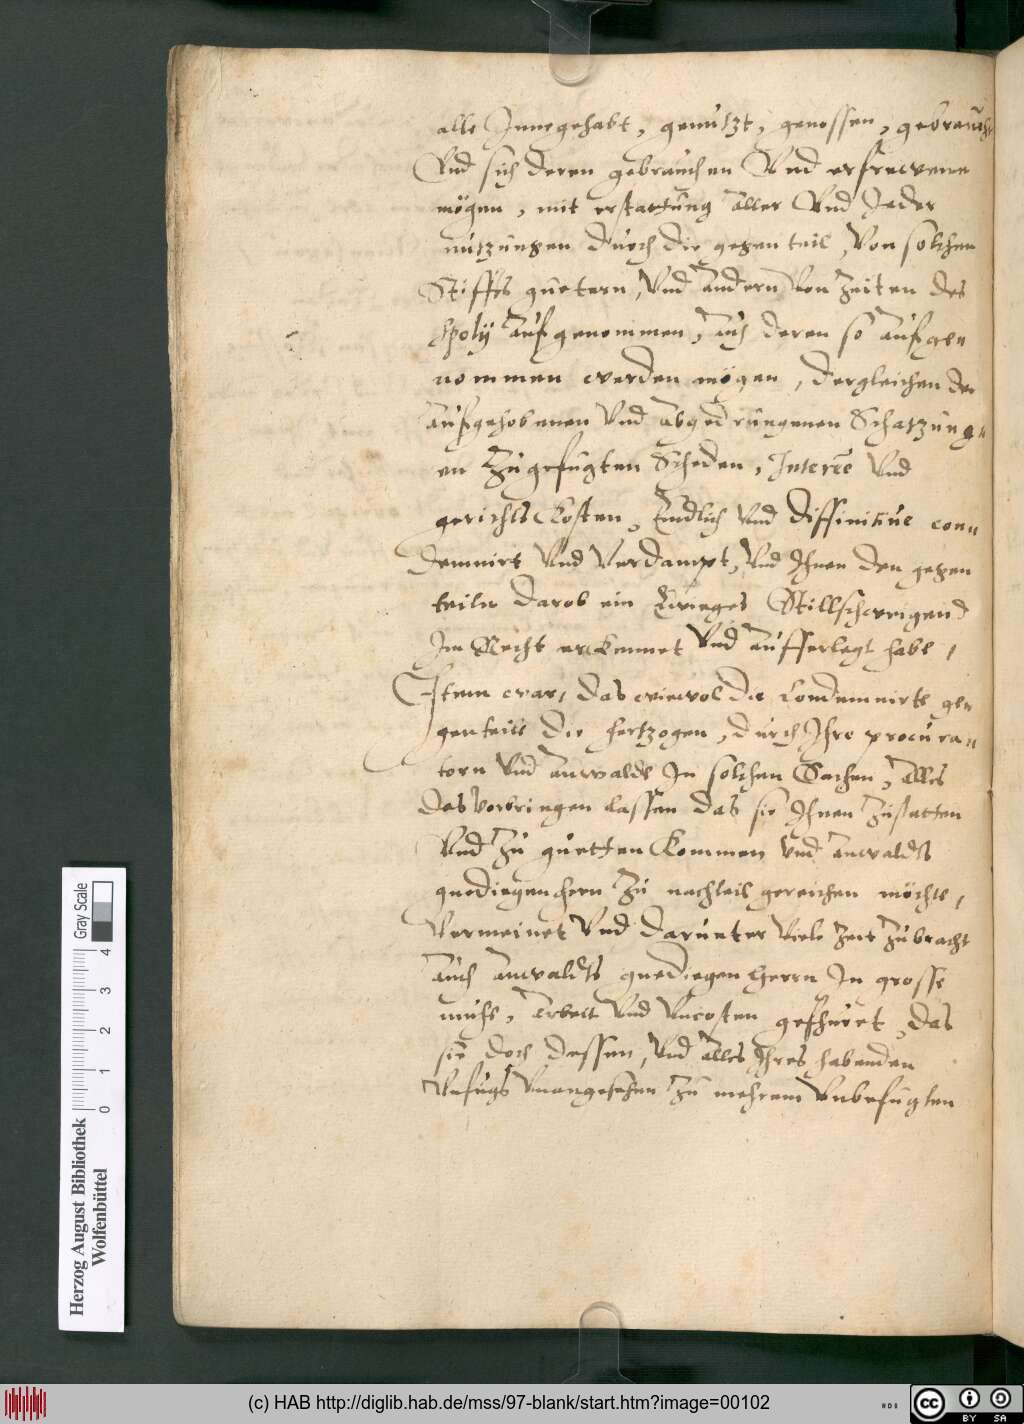 alle Innegehabt, genutzt, genossen, gebraucht
Vnd sich deren gebrauchen Vnd erfrewenn
mögen, mit erstattung aller Vnd Jeder
nutzungen durch die gegenteil, Von solchen
Stiffts guetern, Vnd andern Von Zeiten des
spolij aufgenommen, auch deren so aufge
nommen werden mögen, dergleichen der
aufgehobenen Vnd abgedrungenen Schatzung
en Zugefugten Scheden, Interesse Vnd
gerichts Kosten, Endlich Vnd diffinitiue con
demnirt Vnd Verdampt, Vnd Ihnen den gegen
teiln darob ein Ewiges Stillschweigend
Im Recht erkennet Vnd aufferlegt habe,
Item war, das wiewol die Condemnirte ge
genteile die hertzogen, durch Ihre procura
torn Vnd anwalde In solchen Sachen, alles
das Vorbringen lassen das sie Ihnen Zustatten
Vnd Zu guetten Kommen Vnd anwaldts
gnedigen hern Zu nachteil gereichen möchte,
Vermeinet Vnd darunter Viele Zeit Zubracht
auch anwaldts gnedigen Herrn In grosse
muhe, arbeit Vnd Vncosten gefhüret, das
sie doch dessen, Vnd alles Ihres habenden
Vnfugs Vnangesehen Zu mehrem Vnbefugten
Herzog August Bibliothek
Wolfenbüttel
0 1 2 3 4
Gray Scale
(c) HAB http://diglib.hab.de/mss/97-blank/start.htm?image=00102
cc BY SA